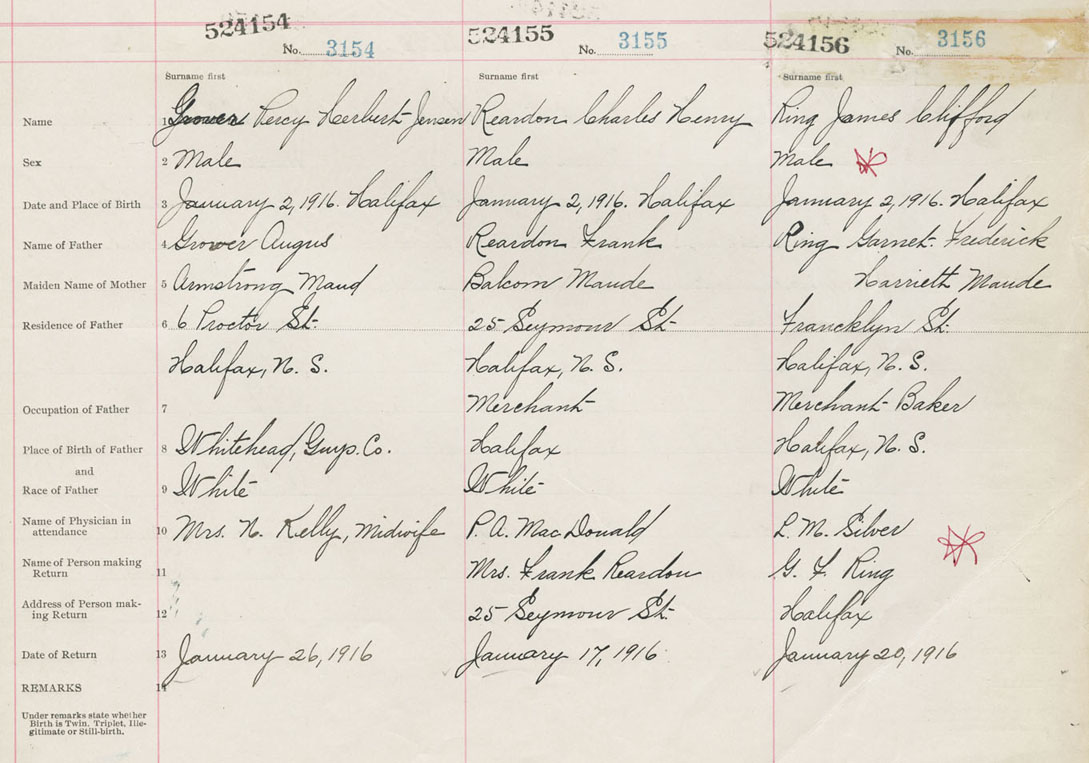 524154 524155 524156
No. 3154 No. 3155 No. 3156
Surname first Surname first Surname first
Name 1 Grover Percy Herbert Jensen Reardon Charles Henry Ring James Clifford
Sex 2 Male Male Male
Date and Place of Birth 3 January 2, 1916. Halifax January 2, 1916. Halifax January 2, 1916. Halifax
Name of Father 4 Grover Angus Reardon Frank Ring Garnet. Frederick
Maiden Name of Mother 5 Armstrong Maud Balcom Maude Harrieth Maude
Residence of Father 6 6 Proctor St. 25 Seymour St. Francklyn St.
Halifax, N. S. Halifax, N. S. Halifax, N. S.
Occupation of Father 7 Merchant Merchant Baker
Place of Birth of Father 8 Whitehead, Guys. Co. Halifax Halifax, N. S.
and
Race of Father 9 White White White
Name of Physician in
attendance 10 Mrs. N. Kelly, Midwife P. A. MacDonald L. M. Silver
Name of Person making
Return 11 Mrs. Frank Reardon G. F. Ring
Address of Person mak-
ing Return 12 25 Seymour St. Halifax
Date of Return 13 January 26, 1916 January 17, 1916 January 20, 1916
REMARKS 14
Under remarks state whether
Birth is Twin. Triplet, Ille-
gitimate or Still-birth.